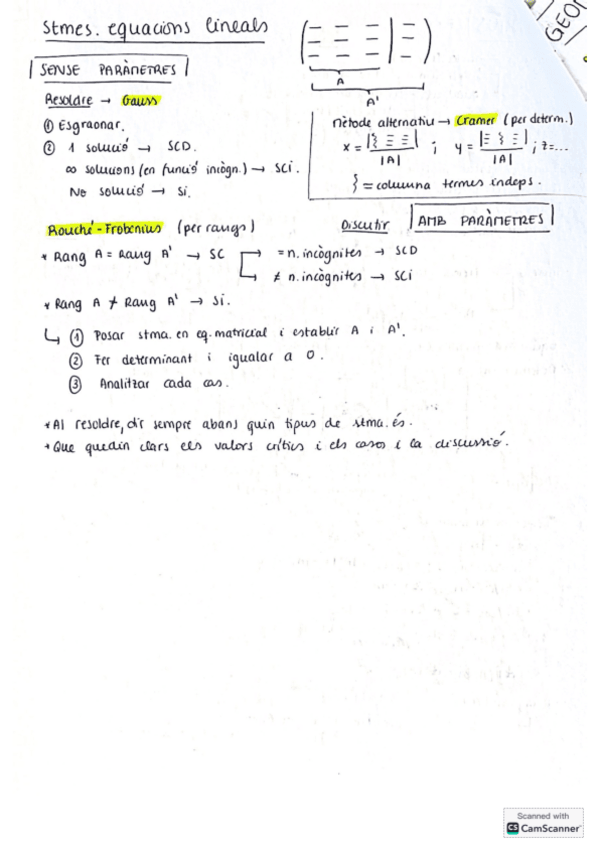 Stmes. equacions lineals
A
A'
GEO
SENSE PARÀMETRES
Resoldre → Gauss
① Esgraonar.
② 1 solució → SCD.
∞ solucions (en funció incògn.) → SCI.
No solució → SI.
Mètode alternatiu → Cramer (per determ.)
x = |} Ξ Ξ| / |A| ; y = |Ξ } Ξ| / |A| ; z=...
} = columna termes indeps.
Rouché-Frobenius (per rangs)
Discutir AMB PARÀMETRES
* Rang A = Rang A' → SC
→ = n. incògnites → SCD
→ ≠ n. incògnites → SCI
* Rang A ≠ Rang A' → SI.
↳ ① Posar stma. en eq. matricial i establir A i A'.
② Fer determinant i igualar a 0.
③ Analitzar cada cas.
* Al resoldre, dir sempre abans quin tipus de stma. és.
* Que quedin clars els valors crítics i els casos i la discussió.
Scanned with
CS CamScanner